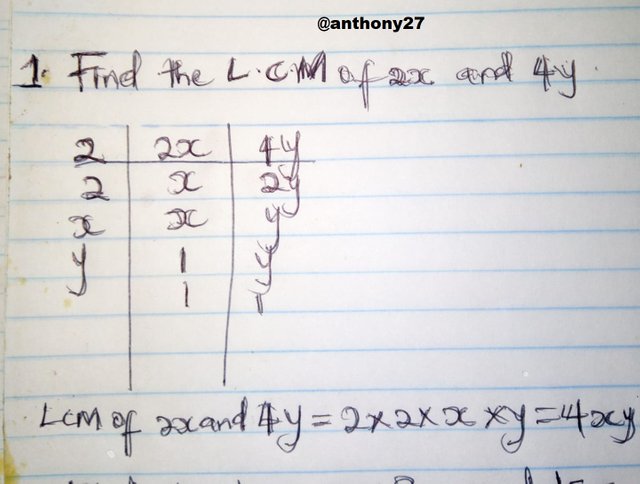 @anthony27
1. Find the L.C.M of 2x and 4y.
2 2x 4y
2 x 2y
x x y
y 1 y
1
LCM of 2x and 4y = 2x2x x xy = 4xy